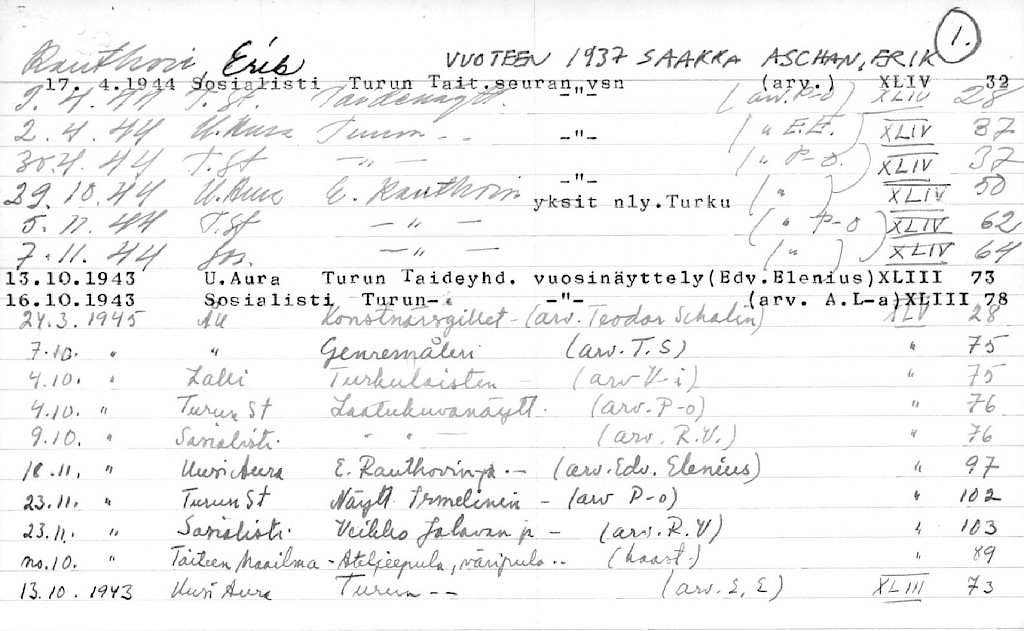 Rauthovi, Erik VUOTEEN 1937 SAAKKA ASCHAN, ERIK 1.
17. 4.1944 Sosialisti Turun Tait.seuran vsn (arv.) XLIV 32
9.4.44 T.St. Taidenäytt. -"- (arv. P-o) XLIV 28
2.4.44 U.Aura Turun -- -"- (" E.E.) XLIV 37
30.4.44 T.St -"- (" P-o.) XLIV 37
29.10.44 U.Aura E. Rauthovin -"- yksit nly.Turku (") XLIV 50
5.11.44 T.St -"- (" P-o) XLIV 62
7.11.44 Sos. -"- (") XLIV 64
13.10.1943 U.Aura Turun Taideyhd. vuosinäyttely(Edv.Elenius)XLIII 73
16.10.1943 Sosialisti Turun- -"- (arv. A.L-a)XLIII 78
24.3.1945 ÅU Konstnärsgillet - (arv. Teodor Schalin) XLV 28
7.10. " " Genremåleri (arv. T.S) " 75
4.10. " Lalli Turkulaisten - (arv V-i) " 75
4.10. " Turun St Laatukuvanäytt. (arv. P-o) " 76
9.10. " Sosialisti. " " — (arv. R.V.) " 76
18.11. " Uusi Aura E. Rauthovin ja .- (arv. Edv. Elenius) " 97
23.11. " Turun St Näytt. Irmelinin - (arv P-o) " 102
23.11. " Sosialisti. Veikko Jalavan ja - (arv. R.V) " 103
no.10. " Taiteen Maailma - Ateljeepula, väripula .. (haast.) " 89
13.10.1943 Uusi Aura Turun -- (arv. E, E) XLIII 73